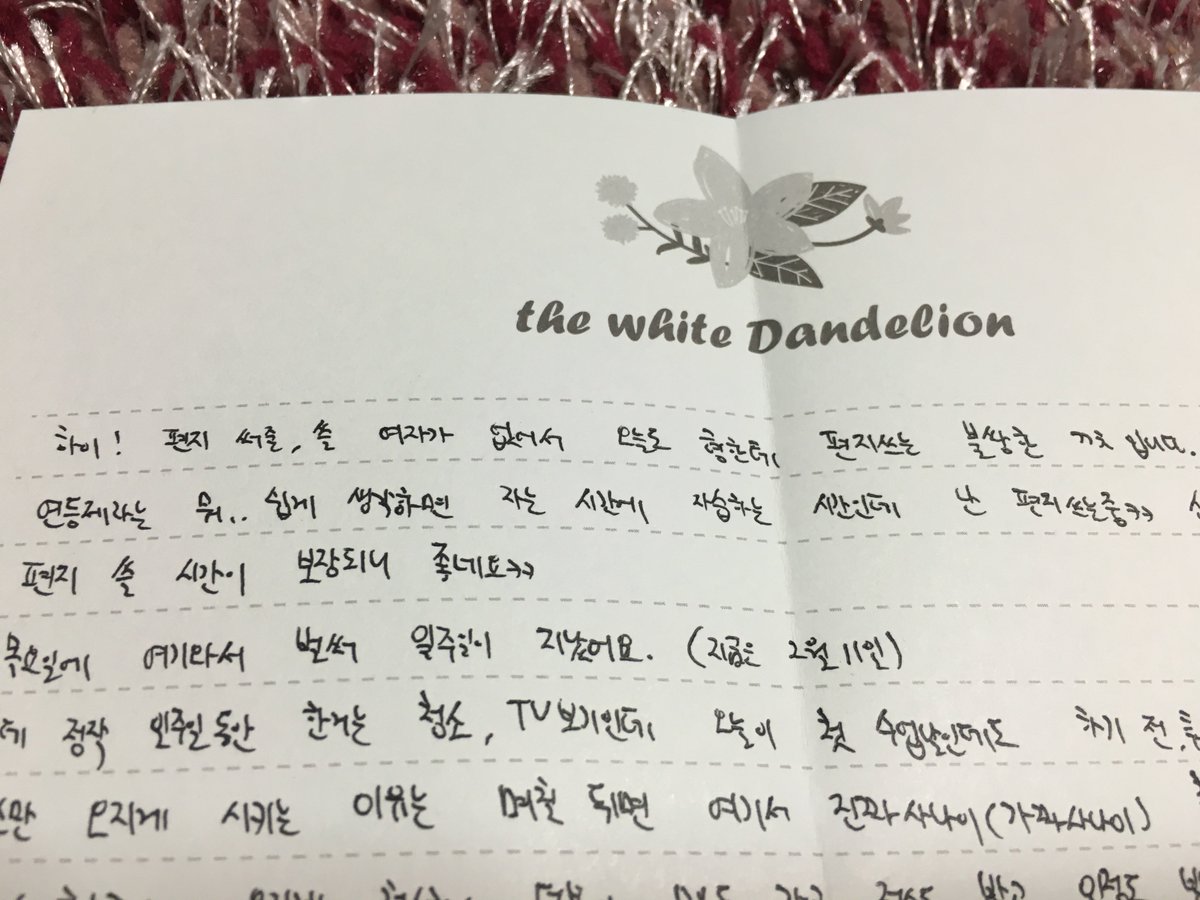 the white Dandelion
하이! 편지 써줄, 쓸 여자가 없어서 오늘도 형한테 편지쓰는 불쌍한 입니다.
연등제라는 뭐.. 쉽게 생각하면 자는 시간에 자습하는 시간인데 난 편지쓰는중ㅋㅋ
편지 쓸 시간이 보장되니 좋네요ㅋㅋ
목요일에 여기와서 벌써 일주일이 지났어요. (지금은 2월 11일)
정작 일주일동안 한거는 청소, TV보기인데 오늘이 첫 수업날인데도 하기 전,
오지게 시키는 이유는 며칠 뒤면 여기서 진짜사나이(가짜사나이)